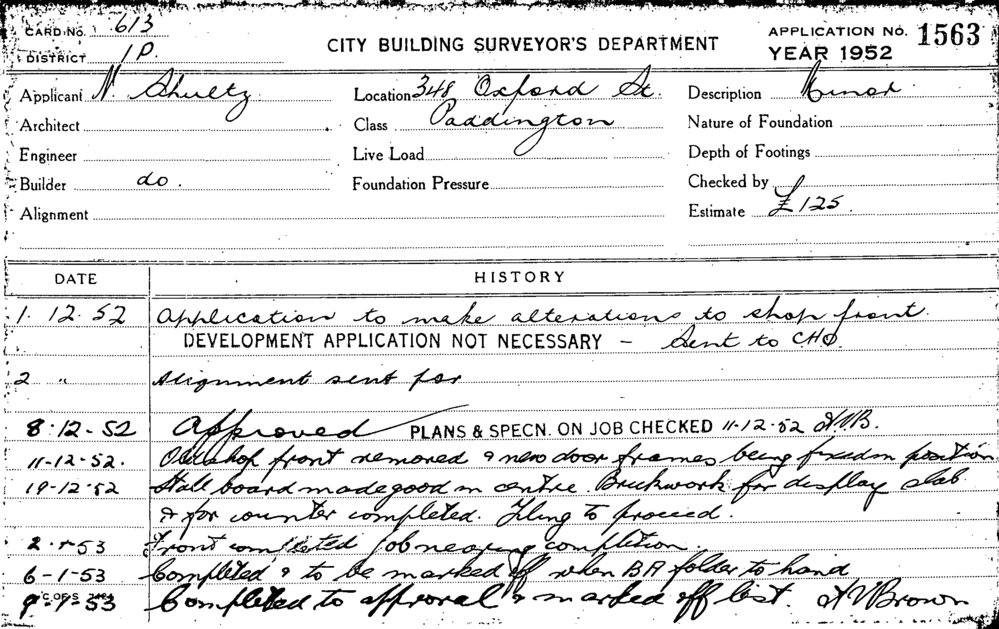 CARD No. 613
DISTRICT 1P.
CITY BUILDING SURVEYOR'S DEPARTMENT
APPLICATION No. 1563
YEAR 1952
Applicant N. Shultz
Location 348 Oxford St.
Description Minor
Architect
Class Paddington
Nature of Foundation
Engineer
Live Load
Depth of Footings
Builder do.
Foundation Pressure
Checked by
Alignment
Estimate £125.
DATE HISTORY
1. 12. 52 Application to make alterations to shop front.
DEVELOPMENT APPLICATION NOT NECESSARY – Sent to CHO.
2 " Alignment sent for
8.12-52 Approved PLANS & SPECN. ON JOB CHECKED 11-12-52
11-12-52. Old shop front removed & new door frames being fixed in position
19-12-52 Stall board made good in centre. Brickwork for display slab
& for counter completed. Tiling to proceed.
2-1-53 Front completed job nearing completion.
6-1-53 Completed & to be marked off when BA folder to hand
9-1-53 Completed to approval & marked off list. Brown